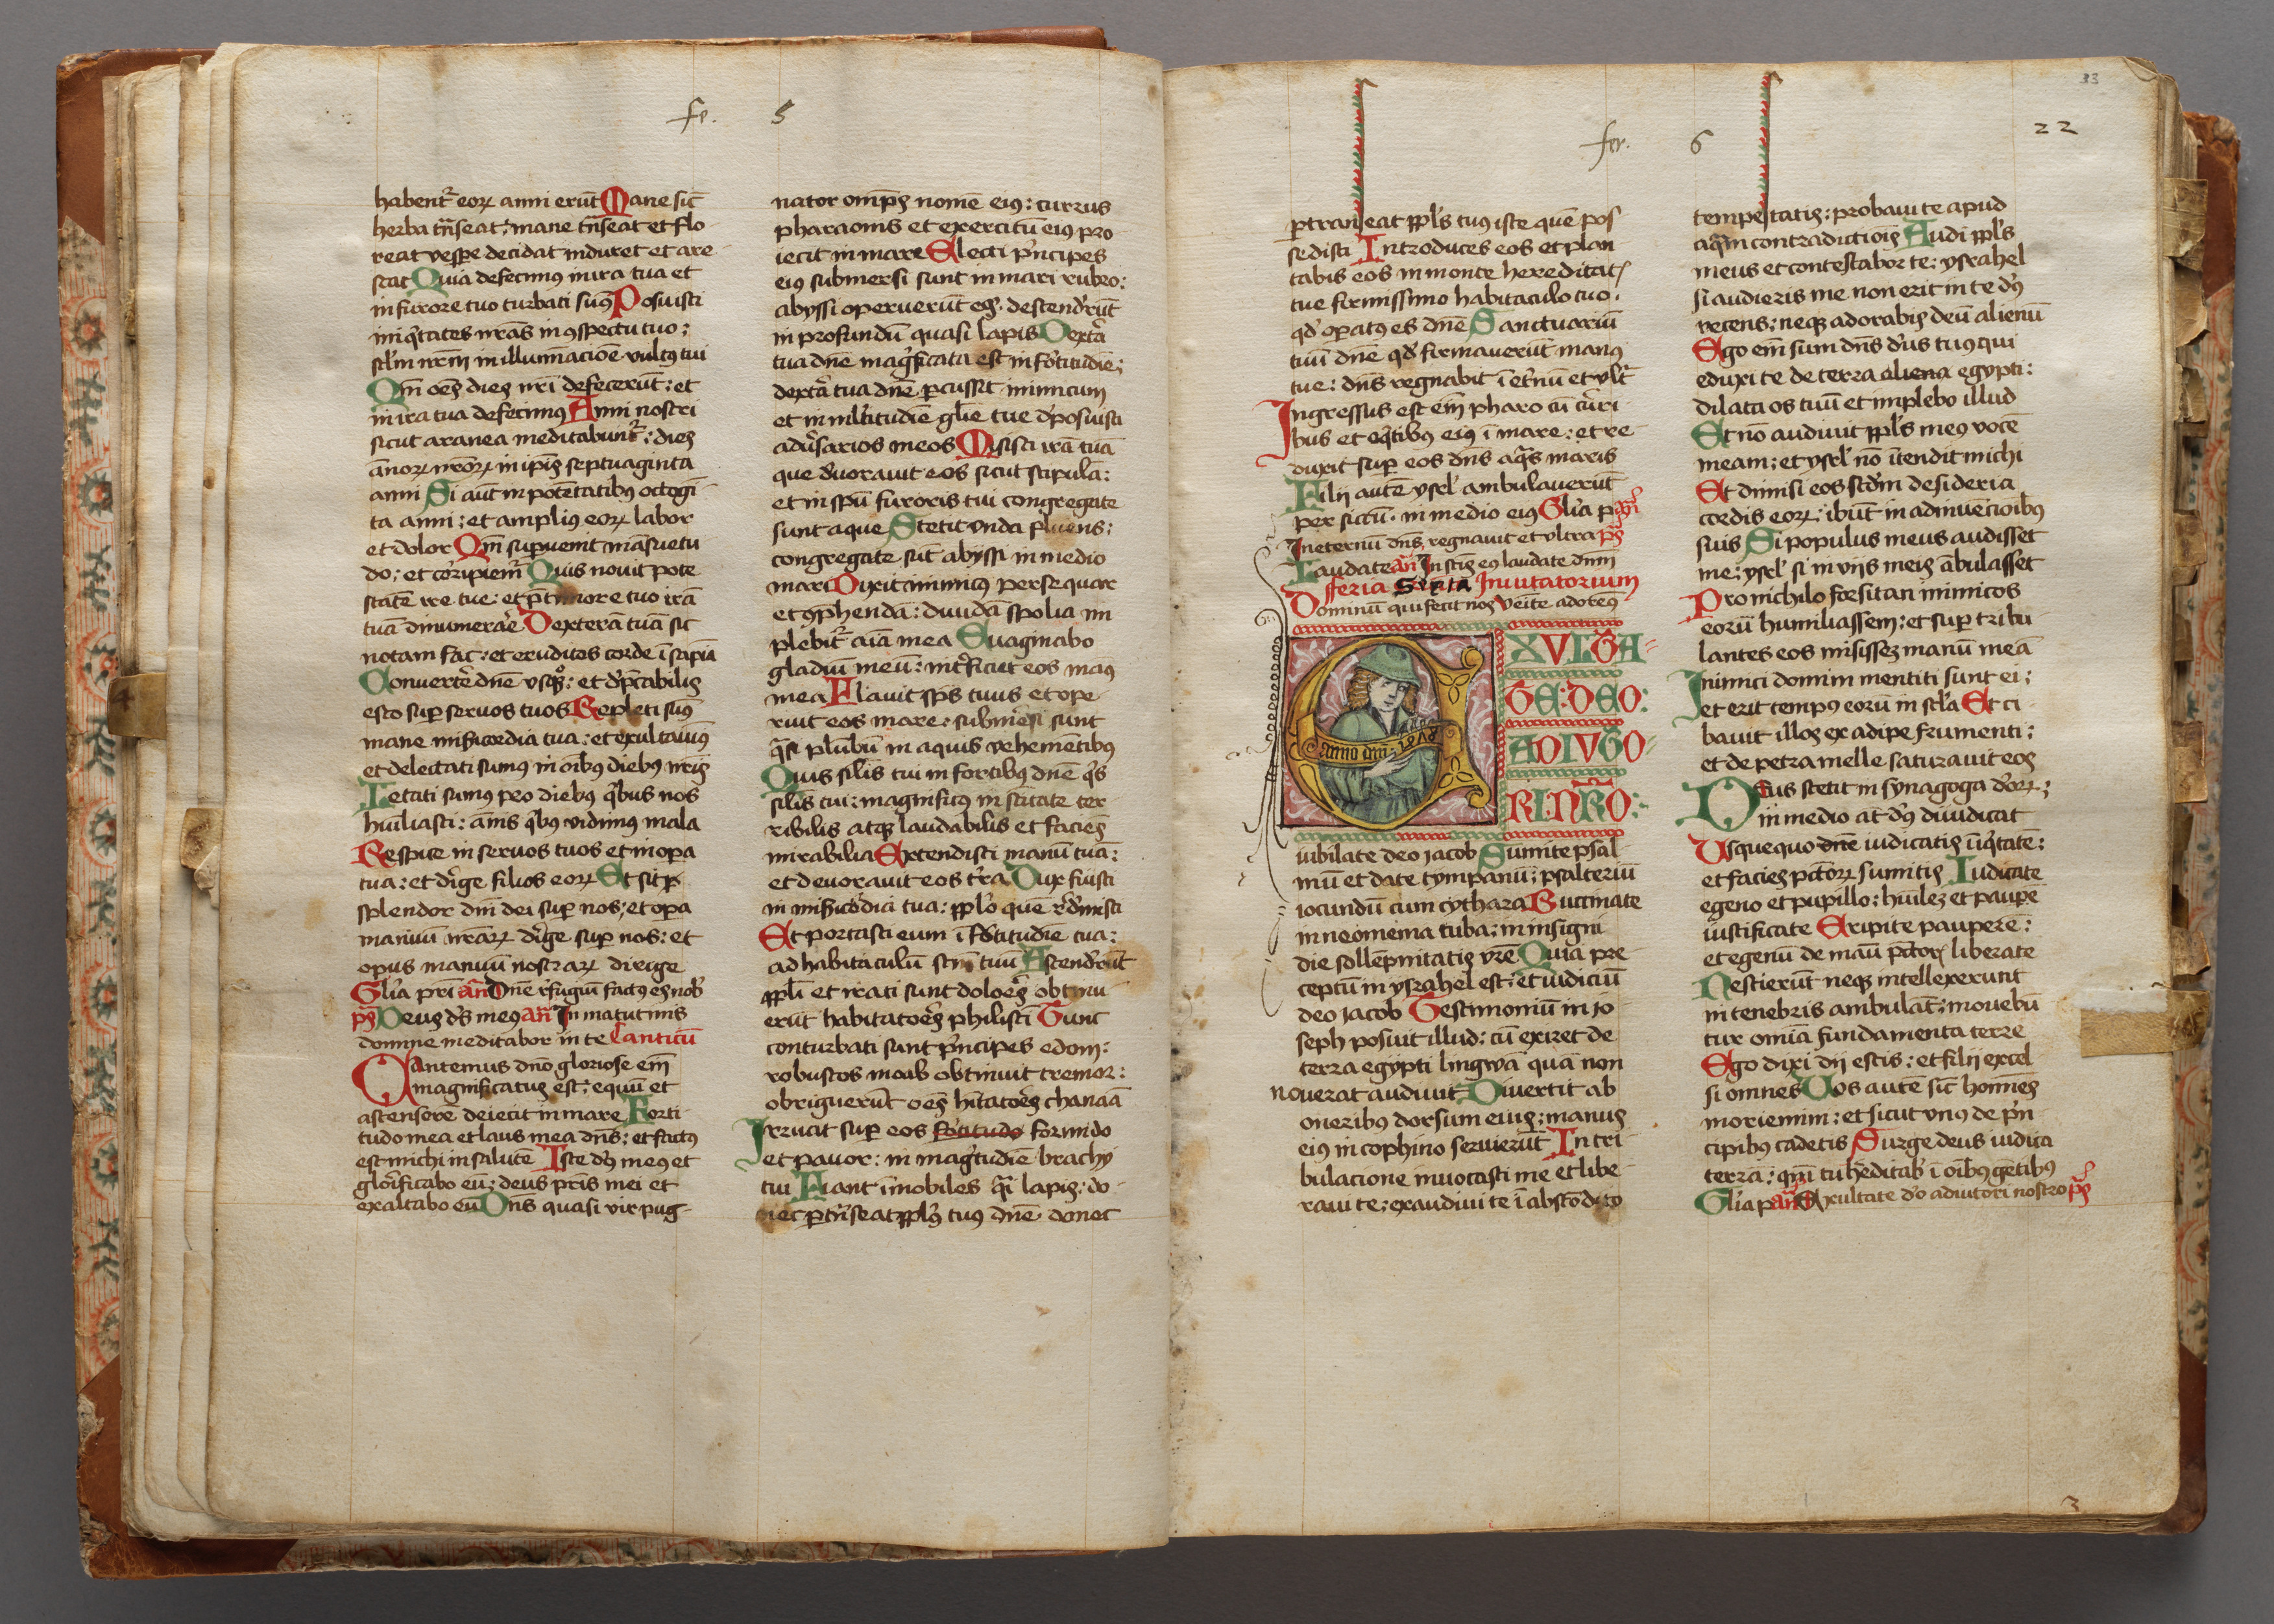 fe. 5
habent᷑ eoꝝ anni erūt Mane sic̄
herba tr̄nseat: mane tr̄nseat et flo
reat vesꝑe decidat induret et are
scat Quia defecimus in ira tua et
in furore tuo turbati sum9 Posuisti
iniq̄tates nr̄as in ꝯspectu tuo:
scl̄m nr̄m in illuminacioē vult9 tui
Qm̄ oēs dies nr̄i defecerūt: et
in ira tua defecim9 Anni nostri
sicut aranea meditabunt᷑: dies
ānoꝝ nr̄oꝝ in ip̄is septuaginta
anni Si aut̄ in potētatib9 octogī
ta anni: et ampli9 eoꝝ labor
et dolor Qm̄ supuenit māsuetu
do: et corripiem᷑ Quis nouit pote
statē ire tue: et p̄ timore tuo irā
tuā dinumerar̄e Dexterā tuā sic
notam fac: et eruditos corde ī sapiā
Conuerter̄e dn̄e vsq̄qͦ: et dp̄cabilis
esto sup seruos tuos Repleti sum9
mane mis̄icordia tua: et exultauim9
et delectati sum9 in oīb9 dieb9 nr̄is
Letati sum9 pro dieb9 qͥbus nos
hūiliasti: ānis qͥb9 vidim9 mala
Respice in seruos tuos et in oꝑa
tua: et dirige filios eoꝝ Et sit ꝑ
splendor dn̄i dei sup nos: et oꝑa
manuū nr̄aꝝ dirige sup nos: et
opus manuū nostraꝝ dirige
Glīa pri an̄ Dn̄e rfugiū fact9 es nob̄
ps̄ Deus ds̄ me9 an̄ In matutinis
domine meditabor in te Canticū
CAntemus dn̄o gloriose em̄
magnificatus est: equū et
ascensorē deiecit in mare Forti
tudo mea et laus mea dn̄s: et fact9
est michi in salutē Iste ds̄ me9 et
glorificabo eū: deus pr̄is mei et
exaltabo eū Dn̄s quasi vir pug-
nator omp̄s nomē ei9: currus
pharaonis et exercitū ei9 pro
iecit in mare Electi p̄ncipes
ei9 submersi sunt in mari rubro:
abyssi operuerūt eos. descenderūt
in profundū quasi lapis Dext̄ra
tua dn̄e mag̈ficata est in fortitudiē:
dext̄ra tua dn̄e ꝑcussit inimicum
et in mltitudiē glīe tue dposuisti
adūsarios meos Misisti irā tuā
que duorauit eos sicut stipulā:
et in sp̄u furoris tui congregate
sunt aque Stetit vnda fluens:
congregate sūt abyssi in medio
mari Dixit inimic9 persequar
et ꝯphendā: diuidā spolia im
plebit᷑ aīā mea Euaginabo
gladiū meū: int̄ficiet eos man9
mea Flauit sp̄s tuus et ope
ruit eos mare: submersi sunt
q̄si plūbū in aquis vehemētib9
Quis silīs tui in fortib9 dn̄e qͥs
silīs tui: magnific9 in sc̄itate ter
ribilis atqꝫ laudabilis et faciēs
mirabilia Extendisti manū tuā:
et deuorauit eos tr̄a Dux fuisti
in mis̄icordia tua: ppl̄o quē rdimisti
Et portasti eum ī fortitudīe tua:
ad habitaculū scm̄ tuū Ascenderūt
ppl̄i et irati sunt dolores obtinu
erūt habitatoēs philistī Tunc
conturbati sunt p̄ncipes edom:
robustos moab obtinuit tremor:
obriguerūt oēs hītatoēs chanaā
Irruat sup eos fortitudo formido
et pauor: in mag̈tudiē brachij
tui Fiant īmobiles q̄si lapis: do-
nec ꝑtr̄nseat ppl̄s tu9 dn̄e donec
fer. 6
33
22
ꝑtranseat ppl̄s tu9 iste quē pos
sedisti Introduces eos et plan
tabis eos in monte hereditat᷑
tue firmissimo habitaculo tuo.
qd̄ oꝑat9 es dn̄e Sanctuariū
tuū dn̄e qd̄ firmauerūt man9
tue: dn̄s regnabit ī et̄nū et vlt̄
Ingressus est em̄ pharo cū curri
bus et eqͥtib9 ei9 ī mare: et re-
duxit sup eos dn̄s aq̄s maris
Filij autē ysrl̄ ambulauerūt
per siccū. in medio ei9 Glīa p
In eternū dn̄s regnauit et vltra ps̄
Laudate an̄ In scīs ei9 laudate dn̄m
fferia Sexta Inuitatorium
Dominū qui fecit nos Venīte adorem9
EXVLTA-
TE: DEO:
ADIVTO-
RI: NR̄O:
anno dni 1494
iubilate deo iacob Sumite psal
mū et date tympanū: psalteriū
iocundū cum cythara Buccinate
in neomenia tuba: in insigni
die sollēpnitatis vr̄e Quia pre
ceptū in ysrahel est: et iudiciū
deo iacob Testimoniū in io
seph posuit illud: cū exiret de
terra egypti lingwā quā non
nouerat audiuit Diuertit ab
onerib9 dorsum eius: manus
ei9 in cophino seruierūt In tri
bulacione inuocasti me et libe
raui te: exaudiui te ī abscōdito
tempestatis: probaui te apud
aq̄m contradictiōis Audi ppl̄s
meus et contestabor te: ysrahel
si audieris me non erit in te ds̄
recens: neqꝫ adorabis deū alienū
Ego em̄ sum dn̄s ds̄us tu9 qui
eduxi te de terra aliena egypti:
dilata os tuū et implebo illud
Et nō audiuit ppl̄s me9 vocē
meam: et ysrl̄ nō ītendit michi
Et dimisi eos scd̄m desideria
cordis eoꝝ: ibūt in adinuēcioib9
suis Si populus meus audisset
me: ysrl̄ si in viis meis ābulasset
Pro nichilo forsitan inimicos
eorū humiliassem: et sup tribu
lantes eos misissez manū meā
Inimici domini mentiti sunt ei:
et erit temp9 eorū in scl̄a Et ci
bauit illos ex adipe frumenti:
et de petra melle saturauit eos
DEus stetit in synagoga deoꝝ:
in medio at̄ ds̄ diiudicat
Vsquequo dn̄e iudicatis iīqͥtatē:
et facies pctōꝝ sumitis Iudicate
egeno et pupillo: hūilez et paupe
iustificate Eripite pauperē:
et egenū de manū pctōꝝ liberate
Nescierūt neqꝫ intellexerunt
in tenebris ambulāt: mouebū
tur omīa fundamenta terre
Ego dixi dij estis: et filij excel
si omnes Vos autē sic̄ hoīnes
moriemini: et sicut vn9 de p̄n
cipib9 cadetis Surge deus iudica
terrā: qm̄ tu hēditab̄ ī oīb9 gētib9
Glīa p an̄ Exultate do adiutori nostro ps̄
3